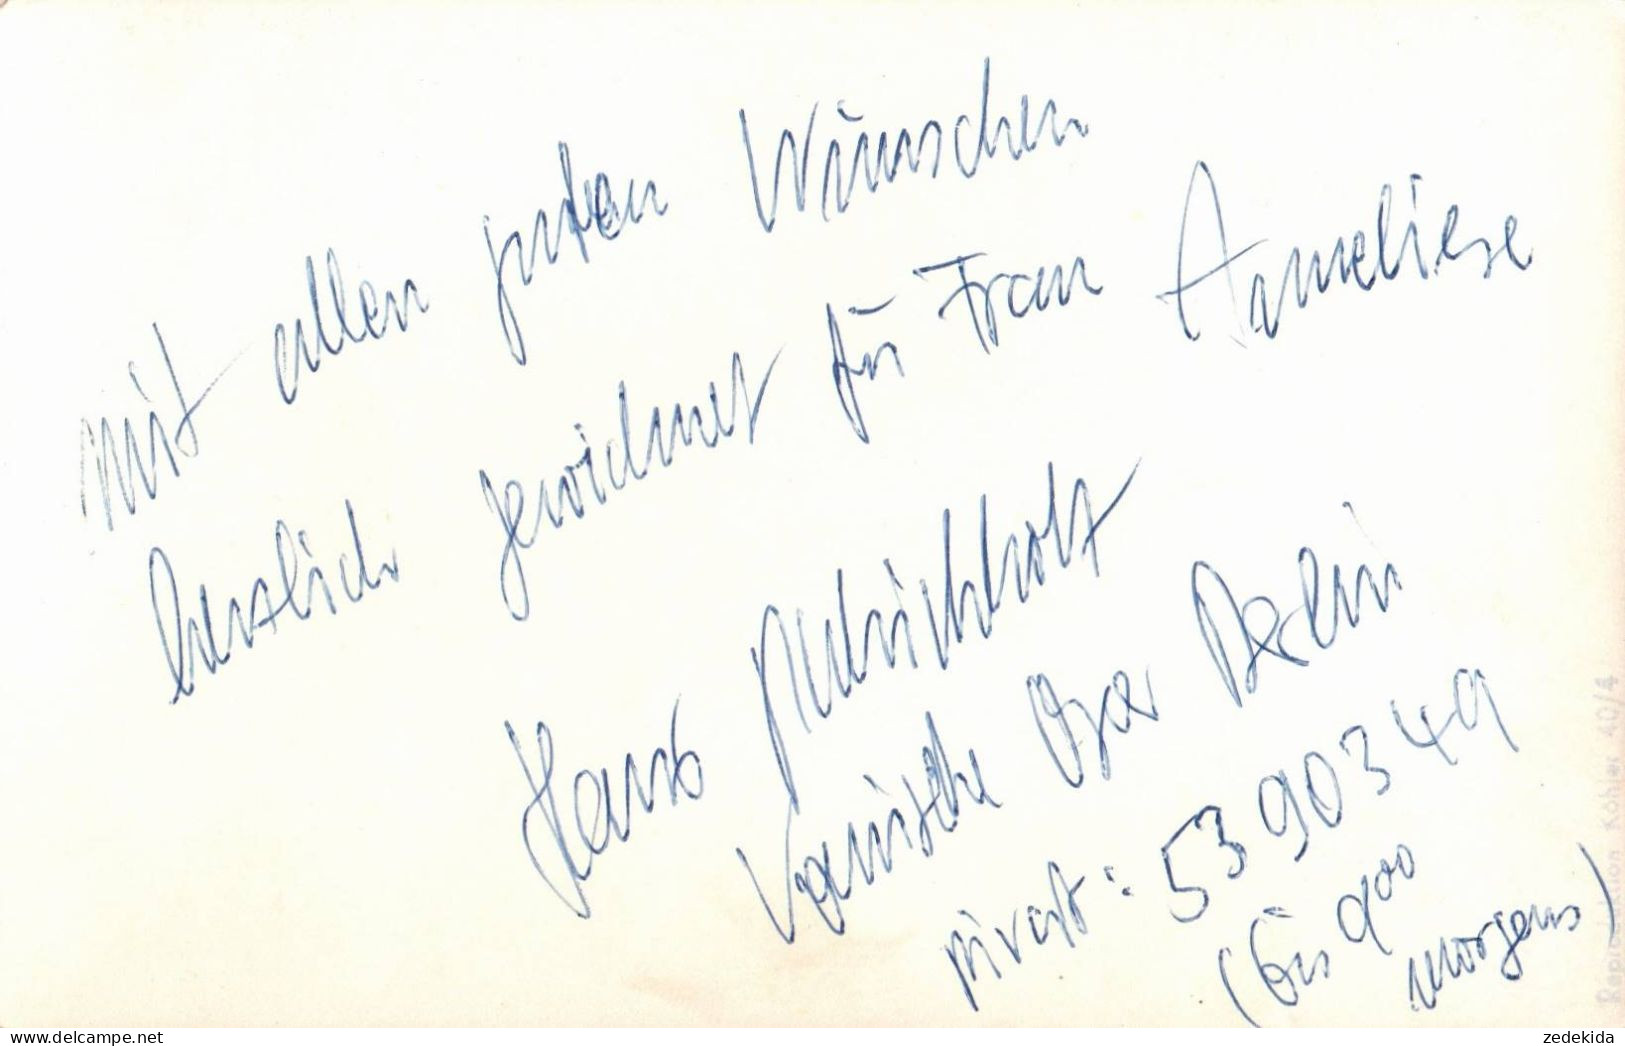 mit allen guten Wünschen
herzlich gewidmet für Frau Anneliese
Hans
Komische Oper Berlin
privat: 5390349
(bis 900
morgens)
Reproduktion Köhler 40/4
zedekida